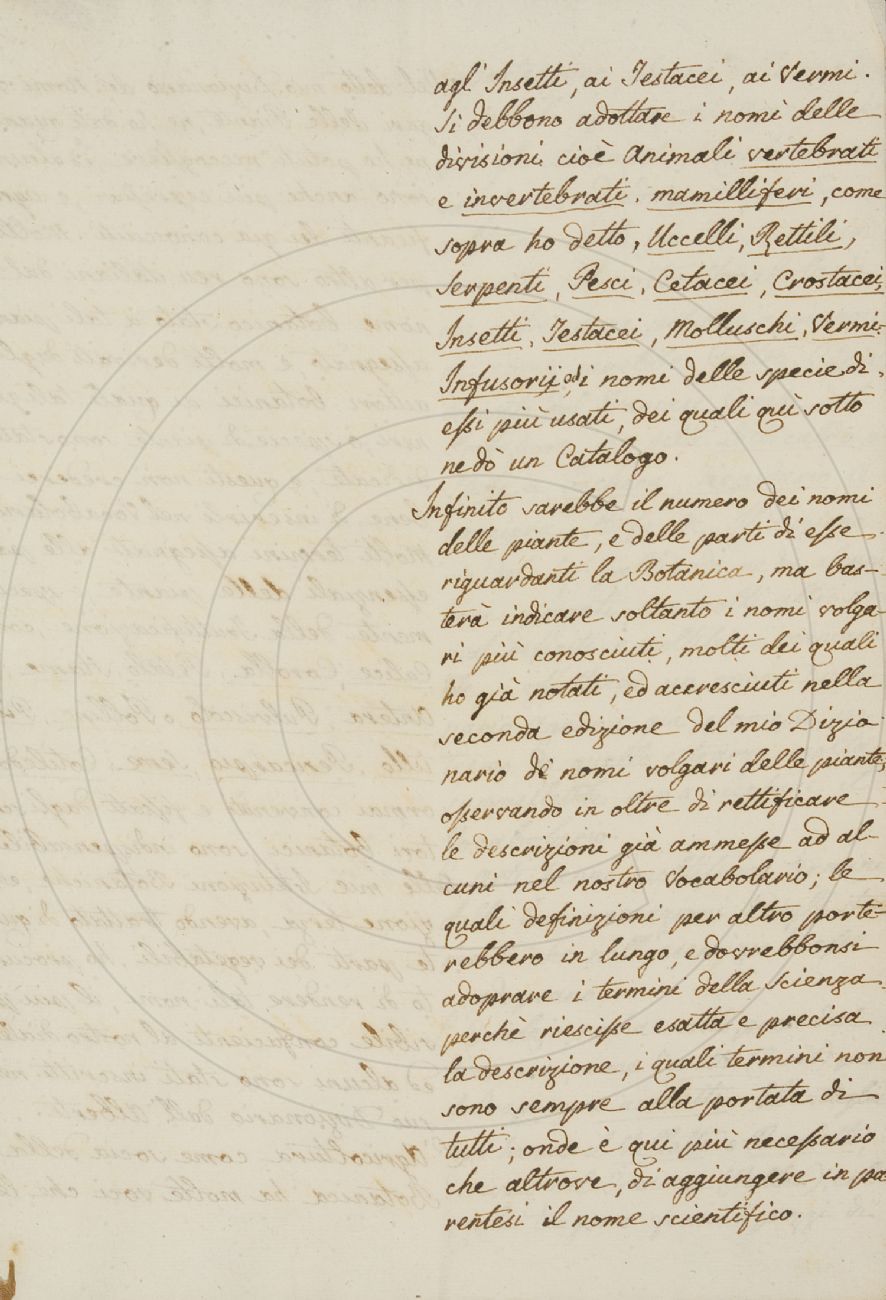 agl' Insetti, ai Testacei, ai Vermi.
Si debbono adottare i nomi delle
divisioni cioè Animali vertebrati
e invertebrati, mamilliferi, come
sopra ho detto, Uccelli, Rettili,
Serpenti, Pesci, Cetacei, Crostacei,
Insetti, Testacei, Molluschi, Vermi,
Infusorij, ed i nomi delle specie di
essi più usati, dei quali quì sotto
ne dò un Catalogo.
Infinito sarebbe il numero dei nomi
delle piante, e delle parti di esse
riguardanti la Botanica, ma bas-
terà indicare soltanto i nomi volga-
ri più conosciuti, molti dei quali
ho già notati, ed accresciuti nella
seconda edizione del mio Dizio-
nario de' nomi volgari delle piante,
osservando in oltre di rettificare
le descrizioni già ammesse ad al-
cuni nel nostro Vocabolario; le
quali definizioni per altro porte-
rebbero in lungo, e dovrebbonsi
adoprare i termini della Scienza
perchè riescisse esatta e precisa
la descrizione, i quali termini non
sono sempre alla portata di
tutti; onde è qui più necessario
che altrove, di aggiungere in pa
rentesi il nome scientifico.